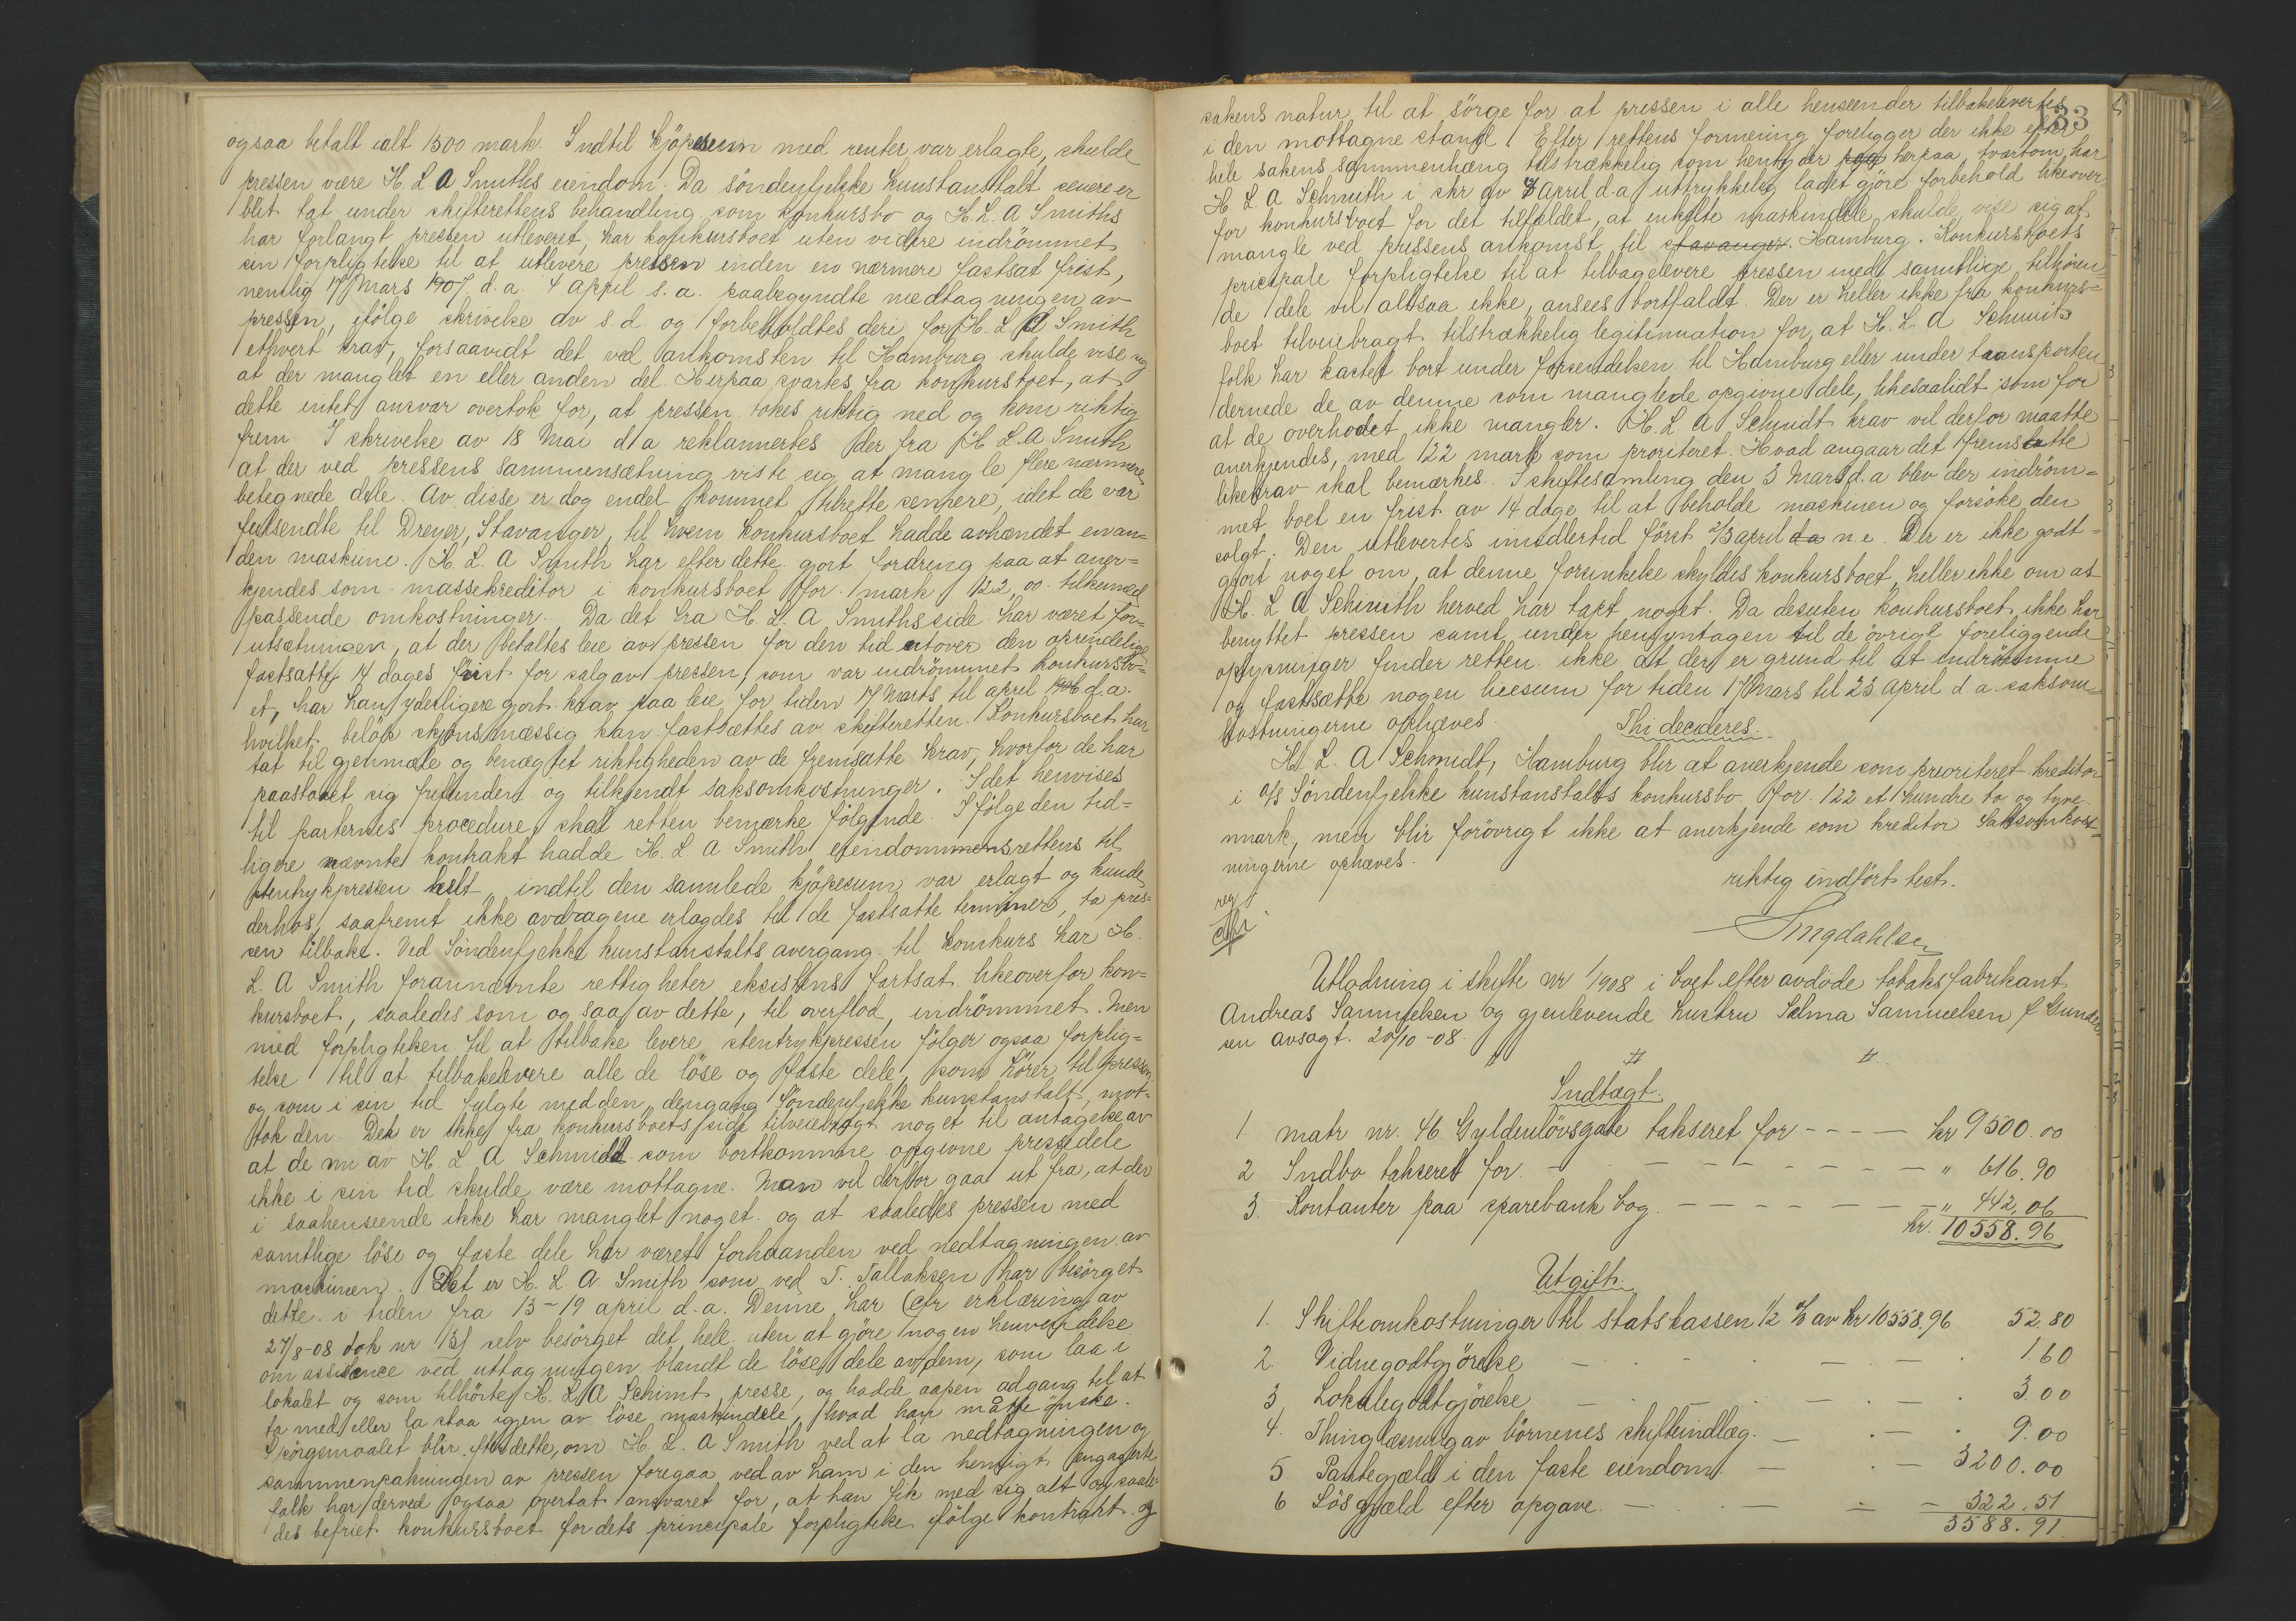 ogsaa betalt ialt 1500 mark. Indtil kjöpesum med renter var erlagte, skulde
pressen være H. L. A Smiths eiendom. Da söndenfjelske kunstanstalt senere er
blit tat under skifterettens behandling som konkursbo og H. L. A Smiths
har forlangt pressen utleveret, har konkursboet uten videre indrömmet
sin forpligtelse til at utlevere pressen inden en nærmere fastsat frist,
nemlig 17 Mars 1907 d. a. 4 april s. a. paabegyndte nedtagningen av
pressen, ifölge skrivelse av s. d og forbeholdtes deri for H. L. A Smith
ethvert krav, forsaavidt det ved ankomsten til Hamburg skulde vise sig
at der manglet en eller anden del. Herpaa svartes fra konkursboet, at
dette intet ansvar overtok for, at pressen tokes riktig ned og kom riktig
frem. I skrivelse av 18 Mai d a reklamertes der fra H. L. A Smith
at der ved pressens sammensætning viste sig at mangle flere nærmere
betegnede dele. Av disse er dog endel kommet tilrette senere, idet de var
feilsendte til Dreyer, Stavanger, til hvem konkursboet hadde avhændet en an-
den maskine. H. L. A Smith har efter dette gjort fordring paa at aner-
kjendes som massekreditor i konkursboet for mark 122,00 tilkemed
passende omkostninger. Da det fra H. L. A Smiths side har været for-
utsætningen, at der betaltes leie av pressen for den tid utover den oprindelige
fastsatte 14 dages frist for salg av pressen, som var indrömmet konkursbo-
et, har han yderligere gjort krav paa leie for tiden 17 Marts til april 1906 d. a.
hvilket belöp skjönsmæssig kan fastsættes av skifteretten. Konkursboet har
tat til gjenmæle og benægtet riktigheden av de fremsatte krav, hvorfor de har
paastaaet sig frifunden og tilkjendt saksomkostninger. Idet henvises
til parternes procedure, skal retten bemærke fölgende. Ifölge den tid-
ligere nævnte kontrakt hadde H. L A Smith eiendommensrettens til
stentrykpressen helt indtil den samlede kjöpesum var erlagt og kunde
derhos, saafremt ikke avdragene erlagdes til de fastsatte terminer, ta pres-
sen tilbake. Ved Söndenfjelske kunstanstalts overgang til konkurs har H.
L. A Smith forannævnte rettigheter eksistens fortsat likeoverfor kon-
kursboet, saaledes som og saa av dette, til overflod, indrömmet. Men
med forpligtelsen til at tilbake levere stentrykpressen fölger ogsaa forplig-
telse til at tilbakelevere alle de löse og faste dele, som hörer til pressen
og som i sin tid fulgte med den, dengang Söndenfjelske kunstanstalt, mot-
tok den. Det er ikke fra konkursboets side tilveiebragt noget til antagelse av
at de nu av H. L. A Schmidt som bortkomne opgivne pressedele
ikke i sin tid skulde være mottagne. Man vil derfor gaa ut fra, at der
i saahenseende ikke har manglet noget og at saaledes pressen med
samtlige löse og faste dele har været forhaanden ved nedtagningen av
maskinen. Det er H. L. A. Smith som ved T. Tallaksen har besörget
dette i tiden fra 13-19 april d. a. Denne har (cfr erklæring av
27/8-08 dok nr 15) selv besörget det hele uten at gjöre nogen henvendelse
om assistence ved uttagningen blandt de löse dele av dem, som laa i
lokalet og som tilhörte H. L. A Schimt presse, og hadde aapen adgang til at
ta med eller la staa igjen av löse maskindele, hvad han måtte önske.
Spörgsmaalet blir efter dette, om H. L. A Smith ved at la nedtagningen og
sammenpakningen av pressen foregaa ved av ham i den hensigt engagerte
folk har derved ogsaa overtat ansvaret for, at han fik med sig alt og saale-
des befriet konkursboet for dets principale forpligtelse ifölge kontrakt og
133
sakens natur til at sörge for at pressen i alle henseender tilbakelevertes
i den mottagne stand. Efter rettens formening foreligger der ikke efter
hele sakens sammenhæng tilstrækkelig som hentyder paa herpaa tvartom har
H. L A Schmith i skr av 7 April d. a uttrykkelig ladet gjöre forbehold likeover-
for konkursboet for det tilfældet, at enkelte maskindele skulde vise sig at
mangle ved pressens ankomst til stavanger. Hamburg. Konkursboets
pricipale forpligtelse til at tilbagelevere pressen med samtlige tilhören-
de dele vil altsaa ikke, ansees bortfaldt. Der er heller ikke fra konkurs-
boet tilveiebragt tilstrækkelig legitimation for at H. L. A Schmits
folk har kastet bort under forsendelsen til Hamburg eller under transporten
dernede de av denne som manglede opgivne dele, likesaalidt som for
at de overhodet ikke mangler. H. L A Schmidt krav vil derfor maatte
anerkjendes, med 122 mark som prioriteret. Hvad angaar det fremsatte
leiekrav skal bemærkes. I skiftesamling den 3 Mars d. a blev der indröm-
met boet en frist av 14 dage til at beholde maskinen og forsöke den
solgt. Den utlevertes imidlertid först 2/3 april da n. e. Der er ikke godt-
gjort noget om, at denne forsinkelse skyldes konkursboet, heller ikke om at
H. L A Schmith herved har tapt noget. Da desuten konkursboet ikke har
benyttet pressen samt under hensyntagen til de övrige foreliggende
oplysninger finder retten ikke at der er grund til at indrömme
og fastsætte nogen leiesum for tiden 17 Mars til 23 April d. a. saksom-
kostningerne ophæves. Thi decideres:
H. L. A Schmidt, Hamburg blir at anerkjende som prioriteret kreditor
i a/s Söndenfjelske kunstanstalts konkursbo for 122 et hundre to og tyve
mark, men blir forövrigt ikke at anerkjende som kreditor Saksomkost-
ningerne ophæves.
riktig indfört test.
reg
Smgdahlsen
Utlodning i skifte nr 1/1908 i boet efter avdöde tobaksfabrikant
Andreas Samuelsen og gjenlevende hustru Selma Samuelsen f Gunder-
sen avsagt. 20/10-08.
Indtægt.
1. matr nr. 46 Gyldenlövsgate takseret for - - - - kr 9500.00
2 Indbo takseret for - - - - - - - - " 616.90
3. Kontanter paa sparebank bog. - - - - - - " 442,06
kr. 10558.96
Utgift.
1. Skifteomkostninger til statskassen 1/2 % av kr 10558.96 52.80
2. Vidnegodtgjörelse - - - 1.60
3, Lokalegodtgjörelse - - - 3.00
4. Thinglæsning av börnenes skifteindlæg. - - 9.00
5 Pantegjæld i den faste eiendom - - 3200.00
6 Lösgjæld efter opgave. - - - - 322.51
3588.91